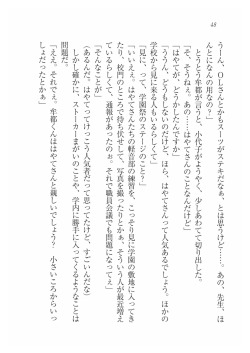 48
うーん、ＯＬさんとかもスーツがステキだなぁ、とは思うけど……。あの、先生、ほ
んとになんの用なの？」
とうとう牟都が言うと、小代子がようやく、少しあわてて切り出した。
「そ、そうねぇ。あの――はやてさんのことなんだけど」
「はやてが、どうかしたんですか？」
「ううん、どうもしないのだけど、ほら、はやてさんって人気あるでしょう。ほかの
学校から見に来る人もいるらしくて」
「見に、って、学園祭のステージのこと？」
「いいえ。はやてさんたちの軽音部の練習を、こっそり見に学園の敷地に入ってき
たり、校門のところで待ち伏せして、写真を撮ったりとかぁ、そういう人が最近増え
ているらしくて、通報があったのぉ。それで職員会議でも問題になってぇ」
「そんなことが」
「あるんだ。はやてってけっこう人気者だって思ってたけど、すごいんだな」
しかし確かに、ストーカーまがいのことや、学内に勝手に入ってくるようなことは
問題だ。
「ええ。それでぇ、牟都くんははやてさんと親しいでしょう？　小さいころからいっ
しょだったとかぁ」